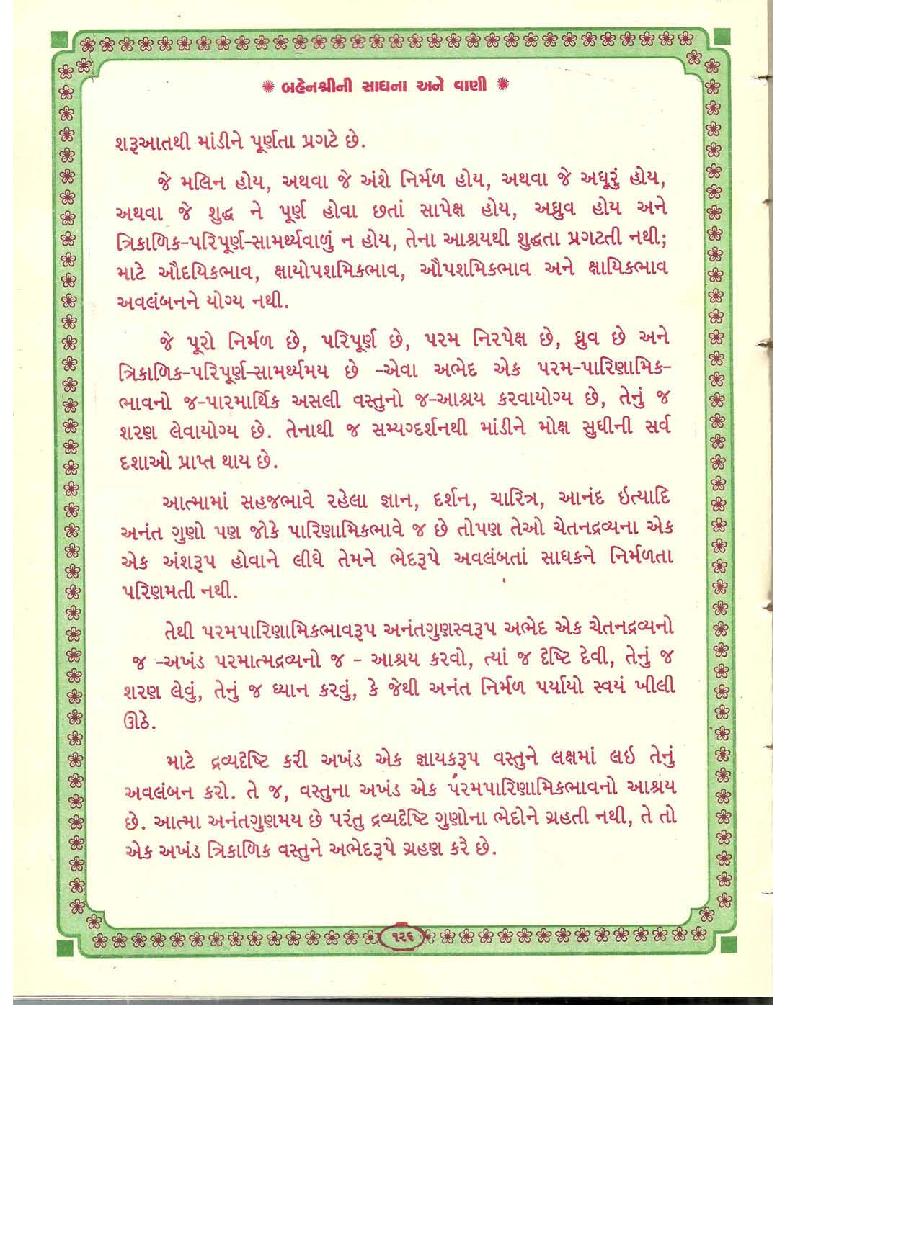 ❋ બહેનશ્રીની સાધના અને વાણી ❋
શરૂઆતથી માંડીને પૂર્ણતા પ્રગટે છે.
જે મલિન હોય, અથવા જે અંશે નિર્મળ હોય, અથવા જે અધૂરું હોય,
અથવા જે શુદ્ધ ને પૂર્ણ હોવા છતાં સાપેક્ષ હોય, અધ્રુવ હોય અને
ત્રિકાળિક-પરિપૂર્ણ-સામર્થ્યવાળું ન હોય, તેના આશ્રયથી શુદ્ધતા પ્રગટતી નથી;
માટે ઔદયિકભાવ, ક્ષાયોપશમિકભાવ, ઔપશમિકભાવ અને ક્ષાયિકભાવ
અવલંબનને યોગ્ય નથી.
જે પૂરો નિર્મળ છે, પરિપૂર્ણ છે, પરમ નિરપેક્ષ છે, ધ્રુવ છે અને
ત્રિકાળિક-પરિપૂર્ણ-સામર્થ્યમય છે -એવા અભેદ એક પરમ-પારિણામિક-
ભાવનો જ-પારમાર્થિક અસલી વસ્તુનો જ-આશ્રય કરવાયોગ્ય છે, તેનું જ
શરણ લેવાયોગ્ય છે. તેનાથી જ સમ્યગ્દર્શનથી માંડીને મોક્ષ સુધીની સર્વ
દશાઓ પ્રાપ્ત થાય છે.
આત્મામાં સહજભાવે રહેલા જ્ઞાન, દર્શન, ચારિત્ર, આનંદ ઇત્યાદિ
અનંત ગુણો પણ જોકે પારિણામિકભાવે જ છે તોપણ તેઓ ચેતનદ્રવ્યના એક
એક અંશરૂપ હોવાને લીધે તેમને ભેદરૂપે અવલંબતાં સાધકને નિર્મળતા
પરિણમતી નથી.
તેથી પરમપારિણામિકભાવરૂપ અનંતગુણસ્વરૂપ અભેદ એક ચેતનદ્રવ્યનો
જ -અખંડ પરમાત્મદ્રવ્યનો જ - આશ્રય કરવો, ત્યાં જ દૃષ્ટિ દેવી, તેનું જ
શરણ લેવું, તેનું જ ધ્યાન કરવું, કે જેથી અનંત નિર્મળ પર્યાયો સ્વયં ખીલી
ઊઠે.
માટે દ્રવ્યદૃષ્ટિ કરી અખંડ એક જ્ઞાયકરૂપ વસ્તુને લક્ષમાં લઇ તેનું
અવલંબન કરો. તે જ, વસ્તુના અખંડ એક પરમપારિણામિકભાવનો આશ્રય
છે. આત્મા અનંતગુણમય છે પરંતુ દ્રવ્યદૃષ્ટિ ગુણોના ભેદોને ગ્રહતી નથી, તે તો
એક અખંડ ત્રિકાળિક વસ્તુને અભેદરૂપે ગ્રહણ કરે છે.
૧૨૬